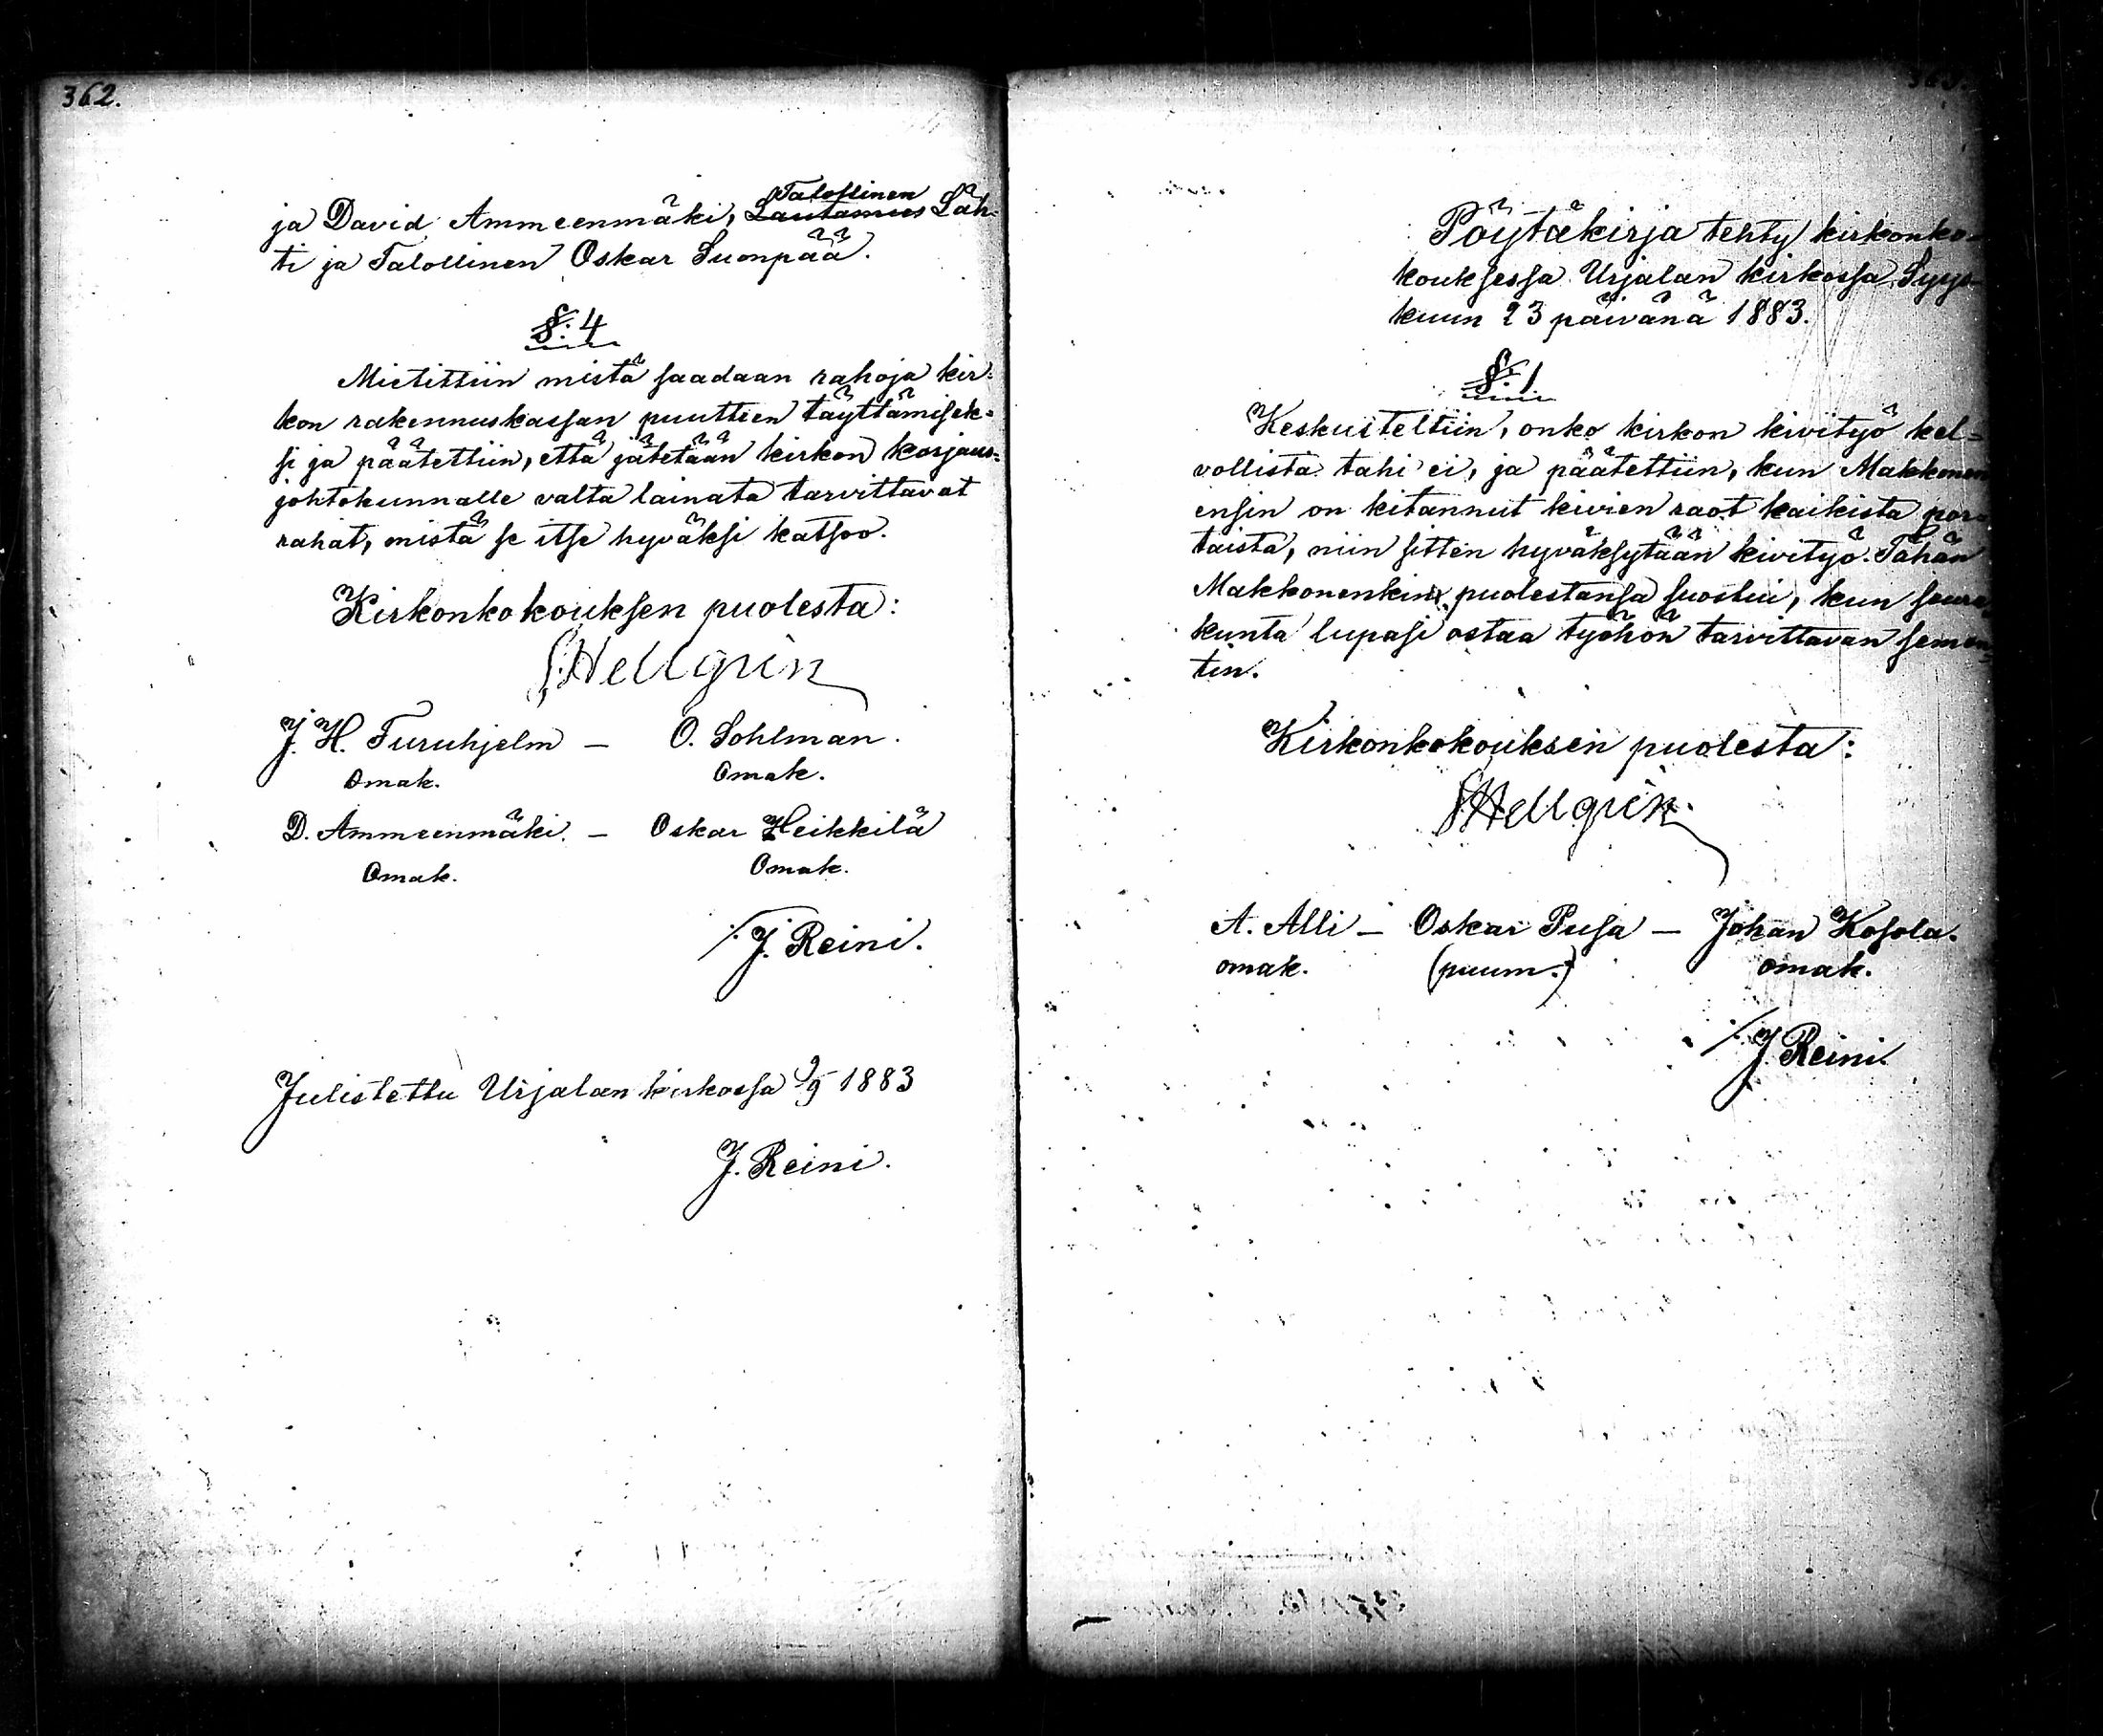 362.
ja David Ammeenmäki, Talollinen Läh-
ti ja Talollinen Oskar Suonpää.
§. 4
Mietittiin mistä saadaan rahoja kir-
kon rakennuskassan puutteen täyttämisek-
si ja päätettiin, että jätetään kirkon korjaus-
johtokunnalle valta lainata tarvittavat
rahat, mistä se itse hyväksi katsoo.
Kirkonkokouksen puolesta:
J. H. Furuhjelm — O. Sohlman.
Omak. Omak.
D. Ammeenmäki. — Oskar Heikkilä
Omak. Omak.
J. Reini.
Julistettu Urjalan kirkossa 9/9 1883
J. Reini.
363.
Pöytäkirja tehty kirkonko-
kouksessa Urjalan kirkossa Syys-
kuun 23 päivänä 1883.
§. 1
Keskusteltiin, onko kirkon kivityö kel-
vollista tahi ei, ja päätettiin, kun Makkonen
ensin on kitannut kivien raot kaikista por-
taista, niin sitten hyväksytään kivityö. Tähän
Makkonenkin puolestansa suostui, kun seura-
kunta lupasi ostaa työhön tarvittavan semen-
tin.
Kirkonkokouksen puolesta:
A. Alli — Oskar Pusa — Johan Kosola.
omak. (puum.) omak.
J. Reini